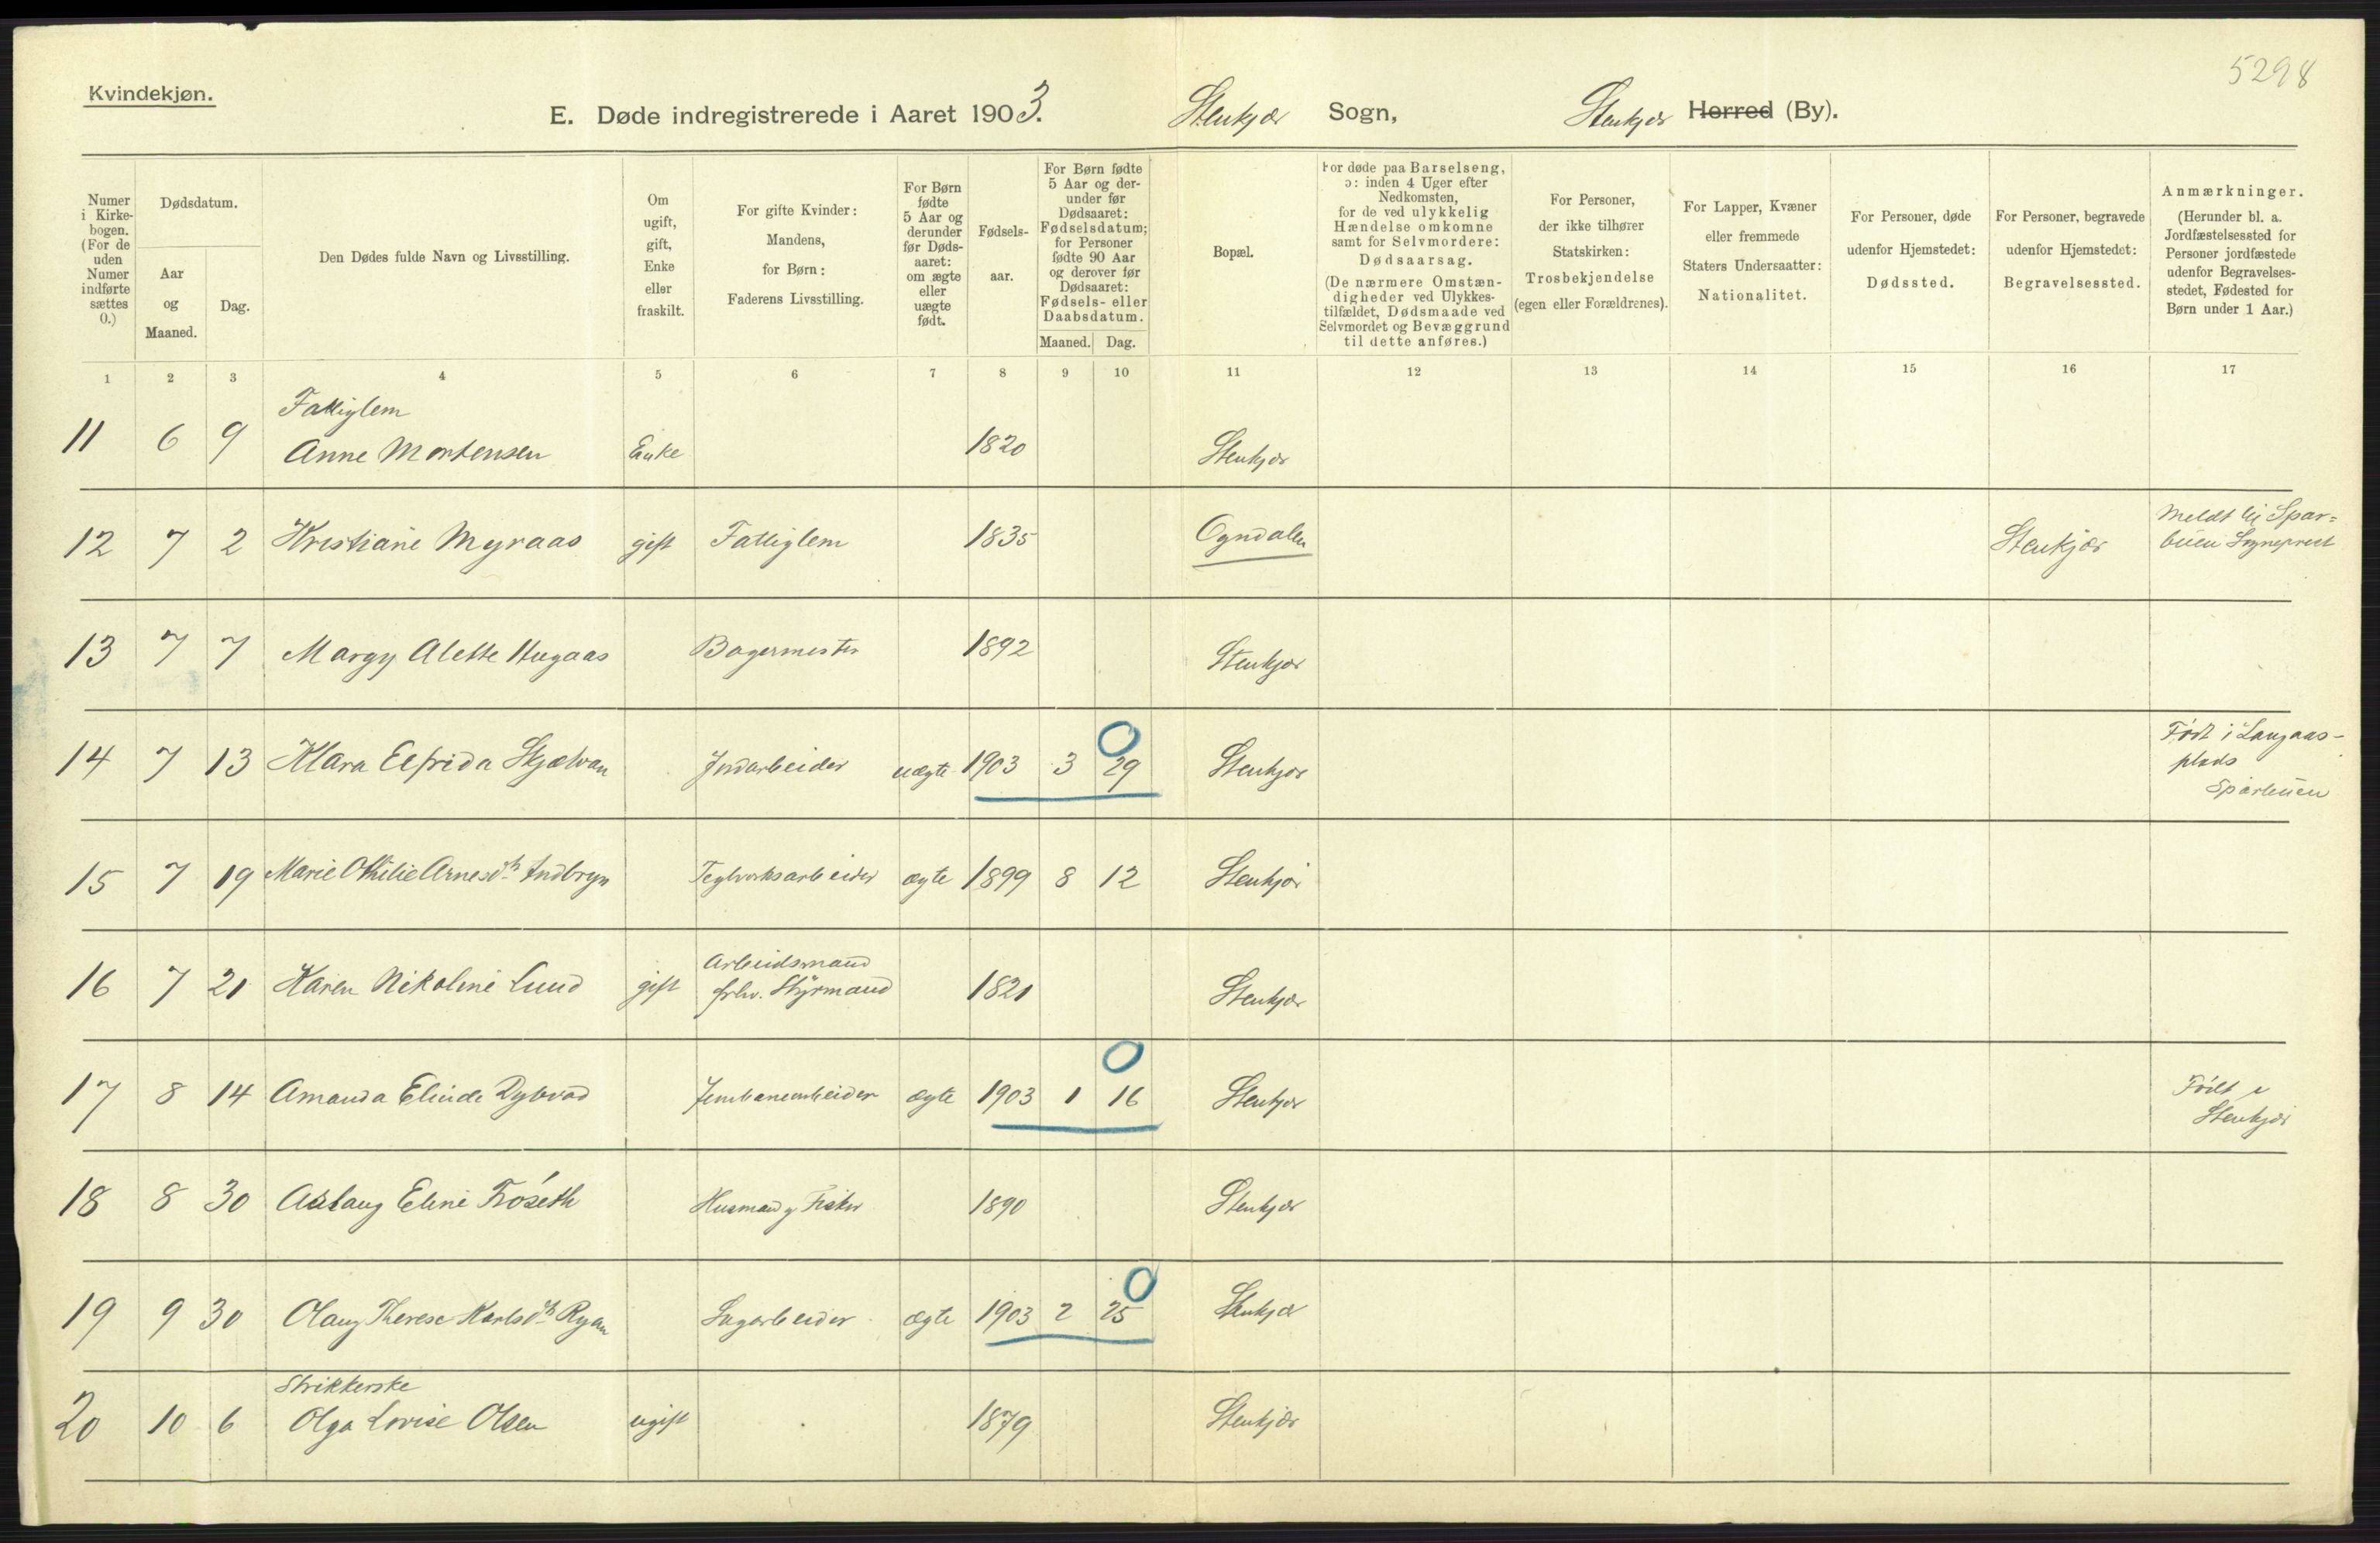 5298
Kvindekjøn.
E. Døde indregistrerede i Aaret 1903. Stenkjær Sogn, Stenkjær Herred (By).
Numer i Kirkebogen. (For de uden Numer indførte sættes 0.)
Dødsdatum.
Aar og Maaned.
Dag.
Den Dødes fulde Navn og Livsstilling.
Om ugift, gift, Enke eller fraskilt.
For gifte Kvinder: Mandens, for Børn: Faderens Livsstilling.
For Børn fødte 5 Aar og derunder før Dødsaaret: om ægte eller uægte født.
Fødselsaar.
For Børn fødte 5 Aar og derunder før Dødsaaret: Fødselsdatum; for Personer fødte 90 Aar og derover før Dødsaaret: Fødsels- eller Daabsdatum.
Maaned. Dag.
Bopæl.
For døde paa Barselseng, ɔ: inden 4 Uger efter Nedkomsten, for de ved ulykkelig Hændelse omkomne samt for Selvmordere: Dødsaarsag. (De nærmere Omstændigheder ved Ulykkestilfældet, Dødsmaade ved Selvmordet og Bevæggrund til dette anføres.)
For Personer, der ikke tilhører Statskirken: Trosbekjendelse (egen eller Forældrenes).
For Lapper, Kvæner eller fremmede Staters Undersaatter: Nationalitet.
For Personer, døde udenfor Hjemstedet: Dødssted.
For Personer, begravede udenfor Hjemstedet: Begravelsessted.
Anmærkninger. (Herunder bl. a. Jordfæstelsessted for Personer jordfæstede udenfor Begravelsesstedet, Fødested for Børn under 1 Aar.)
1 2 3 4 5 6 7 8 9 10 11 12 13 14 15 16 17
Fattiglem
11 6 9 Anne Mortensen Enke 1820 Stenkjær
12 7 2 Kristiane Myraas gift Fattiglem 1835 Ogndalen Stenkjær Meldt til Spar=
buen Sogneprest
13 7 7 Margy Alette Hugaas Bagermester 1892 Stenkjær
14 7 13 Klara Elfrida Skjælvan Jordarbeider uægte 1903 3 29 0 Stenkjær Født i Langaas-
plads
Sparbuen
15 7 19 Marie Othilie Arnesdtr Indbryn Teglverksarbeider ægte 1899 8 12 Stenkjær
Arbeidsmand
16 7 21 Karen Nikoline Lund gift frhv. Styrmand 1821 Stenkjær
17 8 14 Amanda Elinde Dybvad Jernbanearbeider ægte 1903 1 16 0 Stenkjær Født i
Stenkjær
18 8 30 Aslaug Eline Frøseth Husmand og Fisker 1890 Stenkjær
19 9 30 Olaug Therese Karlsdtr Ryan Sagarbeider ægte 1903 2 25 0 Stenkjær
Strikkerske
20 10 6 Olga Lovise Olsen ugift 1879 Stenkjær